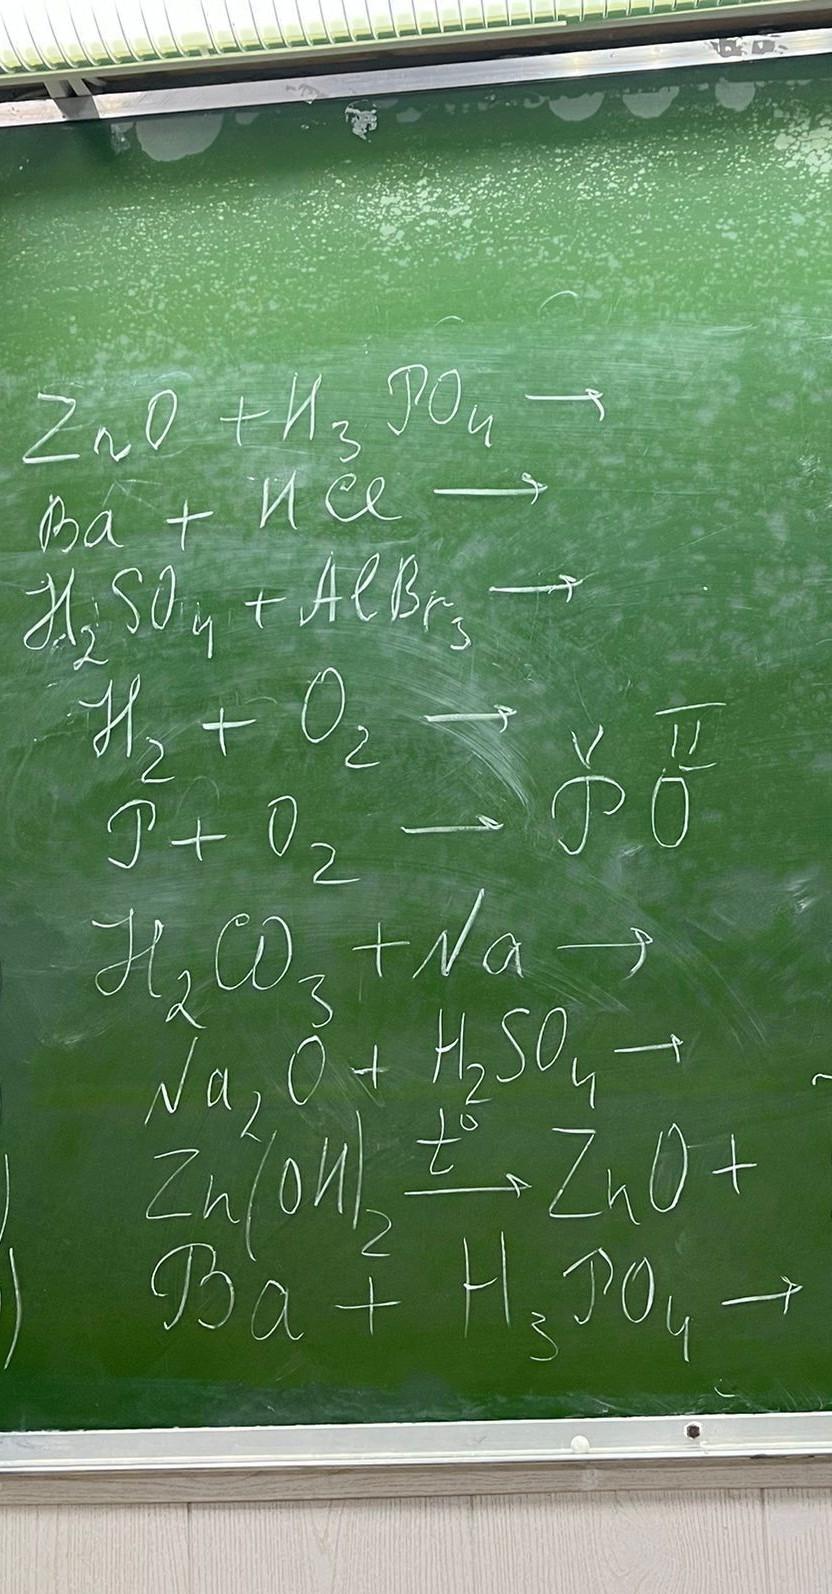 ZnO + H₃PO₄ →
Ba + HCl →
H₂SO₄ + AlBr₃ →
H₂ + O₂ →
V II
P + O₂ → P O
H₂CO₃ + Na →
Na₂O + H₂SO₄ →
t°
) Zn(OH)₂ → ZnO +
) Ba + H₃PO₄ →